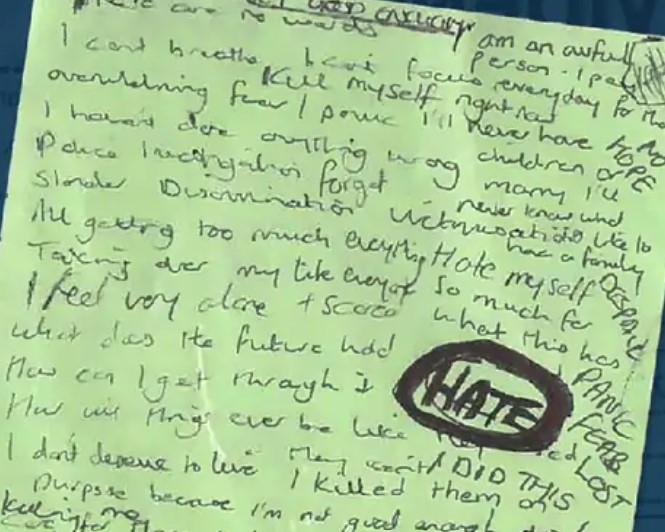 There are no words
not good enough
I am an awful person. I pay everyday for that
I cant breathe I cant focus
Kill myself right now
overwhelming fear / panic I'll never have children or marry I'll never know what
NO HOPE
I havent done anything wrong
Police Investigation forget
Slander Discrimination Victimisation
its like to have a family
All getting too much everything
Hate myself so much for what this has
Taking over my life everyday
DESPAIR
I feel very alone + scared
PANIC
What does the future hold
FEAR
How can I get through it
LOST
HATE
How will things ever be like
I don't deserve to live
I DID THIS
I killed them on
purpose because I'm not good enough
killing me